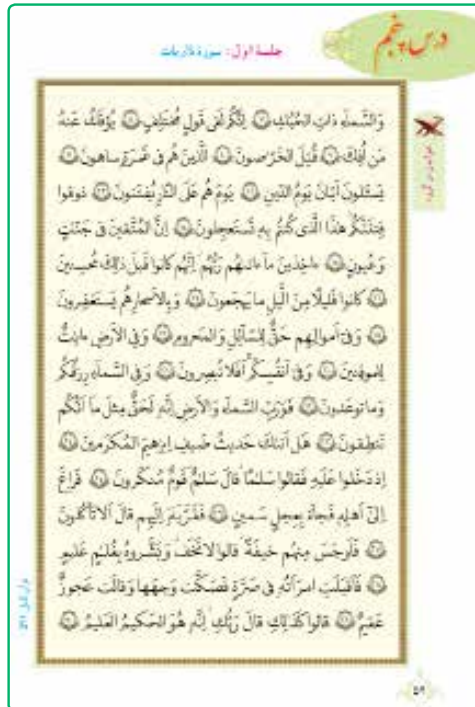 درس پنجم
جلسهٔ اول: سورهٔ ذاریات
وَالسَّماءِ ذاتِ الحُبُكِ ۷ اِنَّكُم لَفى قَولٍ مُختَلِفٍ ۸ يُؤفَكُ عَنهُ
مَن اُفِكَ ۹ قُتِلَ الخَرّاصونَ ۱۰ اَلَّذينَ هُم فى غَمرَةٍ ساهونَ ۱۱
يَسئَلونَ اَيّانَ يَومُ الدّينِ ۱۲ يَومَ هُم عَلَى النّارِ يُفتَنونَ ۱۳ ذوقوا
فِتنَتَكُم هٰذَا الَّذى كُنتُم بِه تَستَعجِلونَ ۱۴ اِنَّ المُتَّقينَ فى جَنّٰتٍ
وَ عُيونٍ ۱۵ ءاخِذينَ ما ءاتٰهُم رَبُّهُم اِنَّهُم كانوا قَبلَ ذٰلِكَ مُحسِنينَ
۱۶ كانوا قَليلًا مِنَ الَّيلِ ما يَهجَعونَ ۱۷ وَ بِالاَسحارِ هُم يَستَغفِرونَ
۱۸ وَ فى اَموالِهِم حَقٌّ لِلسّائِلِ وَ المَحرومِ ۱۹ وَ فِى الاَرضِ ءايٰتٌ
لِلموقِنينَ ۲۰ وَ فى اَنفُسِكُم اَفَلا تُبصِرونَ ۲۱ وَ فِى السَّماءِ رِزقُكُم
وَ ما توعَدونَ ۲۲ فَوَرَبِّ السَّماءِ وَ الاَرضِ اِنَّه لَحَقٌّ مِثلَ ما اَنَّكُم
تَنطِقونَ ۲۳ هَل اَتٰكَ حَديثُ ضَيفِ اِبرٰهيمَ المُكرَمينَ ۲۴
اِذ دَخَلوا عَلَيهِ فَقالوا سَلٰمًا قالَ سَلٰمٌ قَومٌ مُنكَرونَ ۲۵ فَراغَ
اِلىٰ اَهلِه فَجاءَ بِعِجلٍ سَمينٍ ۲۶ فَقَرَّبَه اِلَيهِم قالَ اَلا تَأكُلونَ
۲۷ فَاَوجَسَ مِنهُم خيفَةً قالوا لا تَخَف وَ بَشَّروهُ بِغُلٰمٍ عَليمٍ
۲۸ فَاَقبَلَتِ امرَاَتُه فى صَرَّةٍ فَصَكَّت وَجهَها وَ قالَت عَجوزٌ
عَقيمٌ ۲۹ قالوا كَذٰلِكِ قالَ رَبُّكِ اِنَّه هُوَ الحَكيمُ العَليمُ ۳۰
۵۹